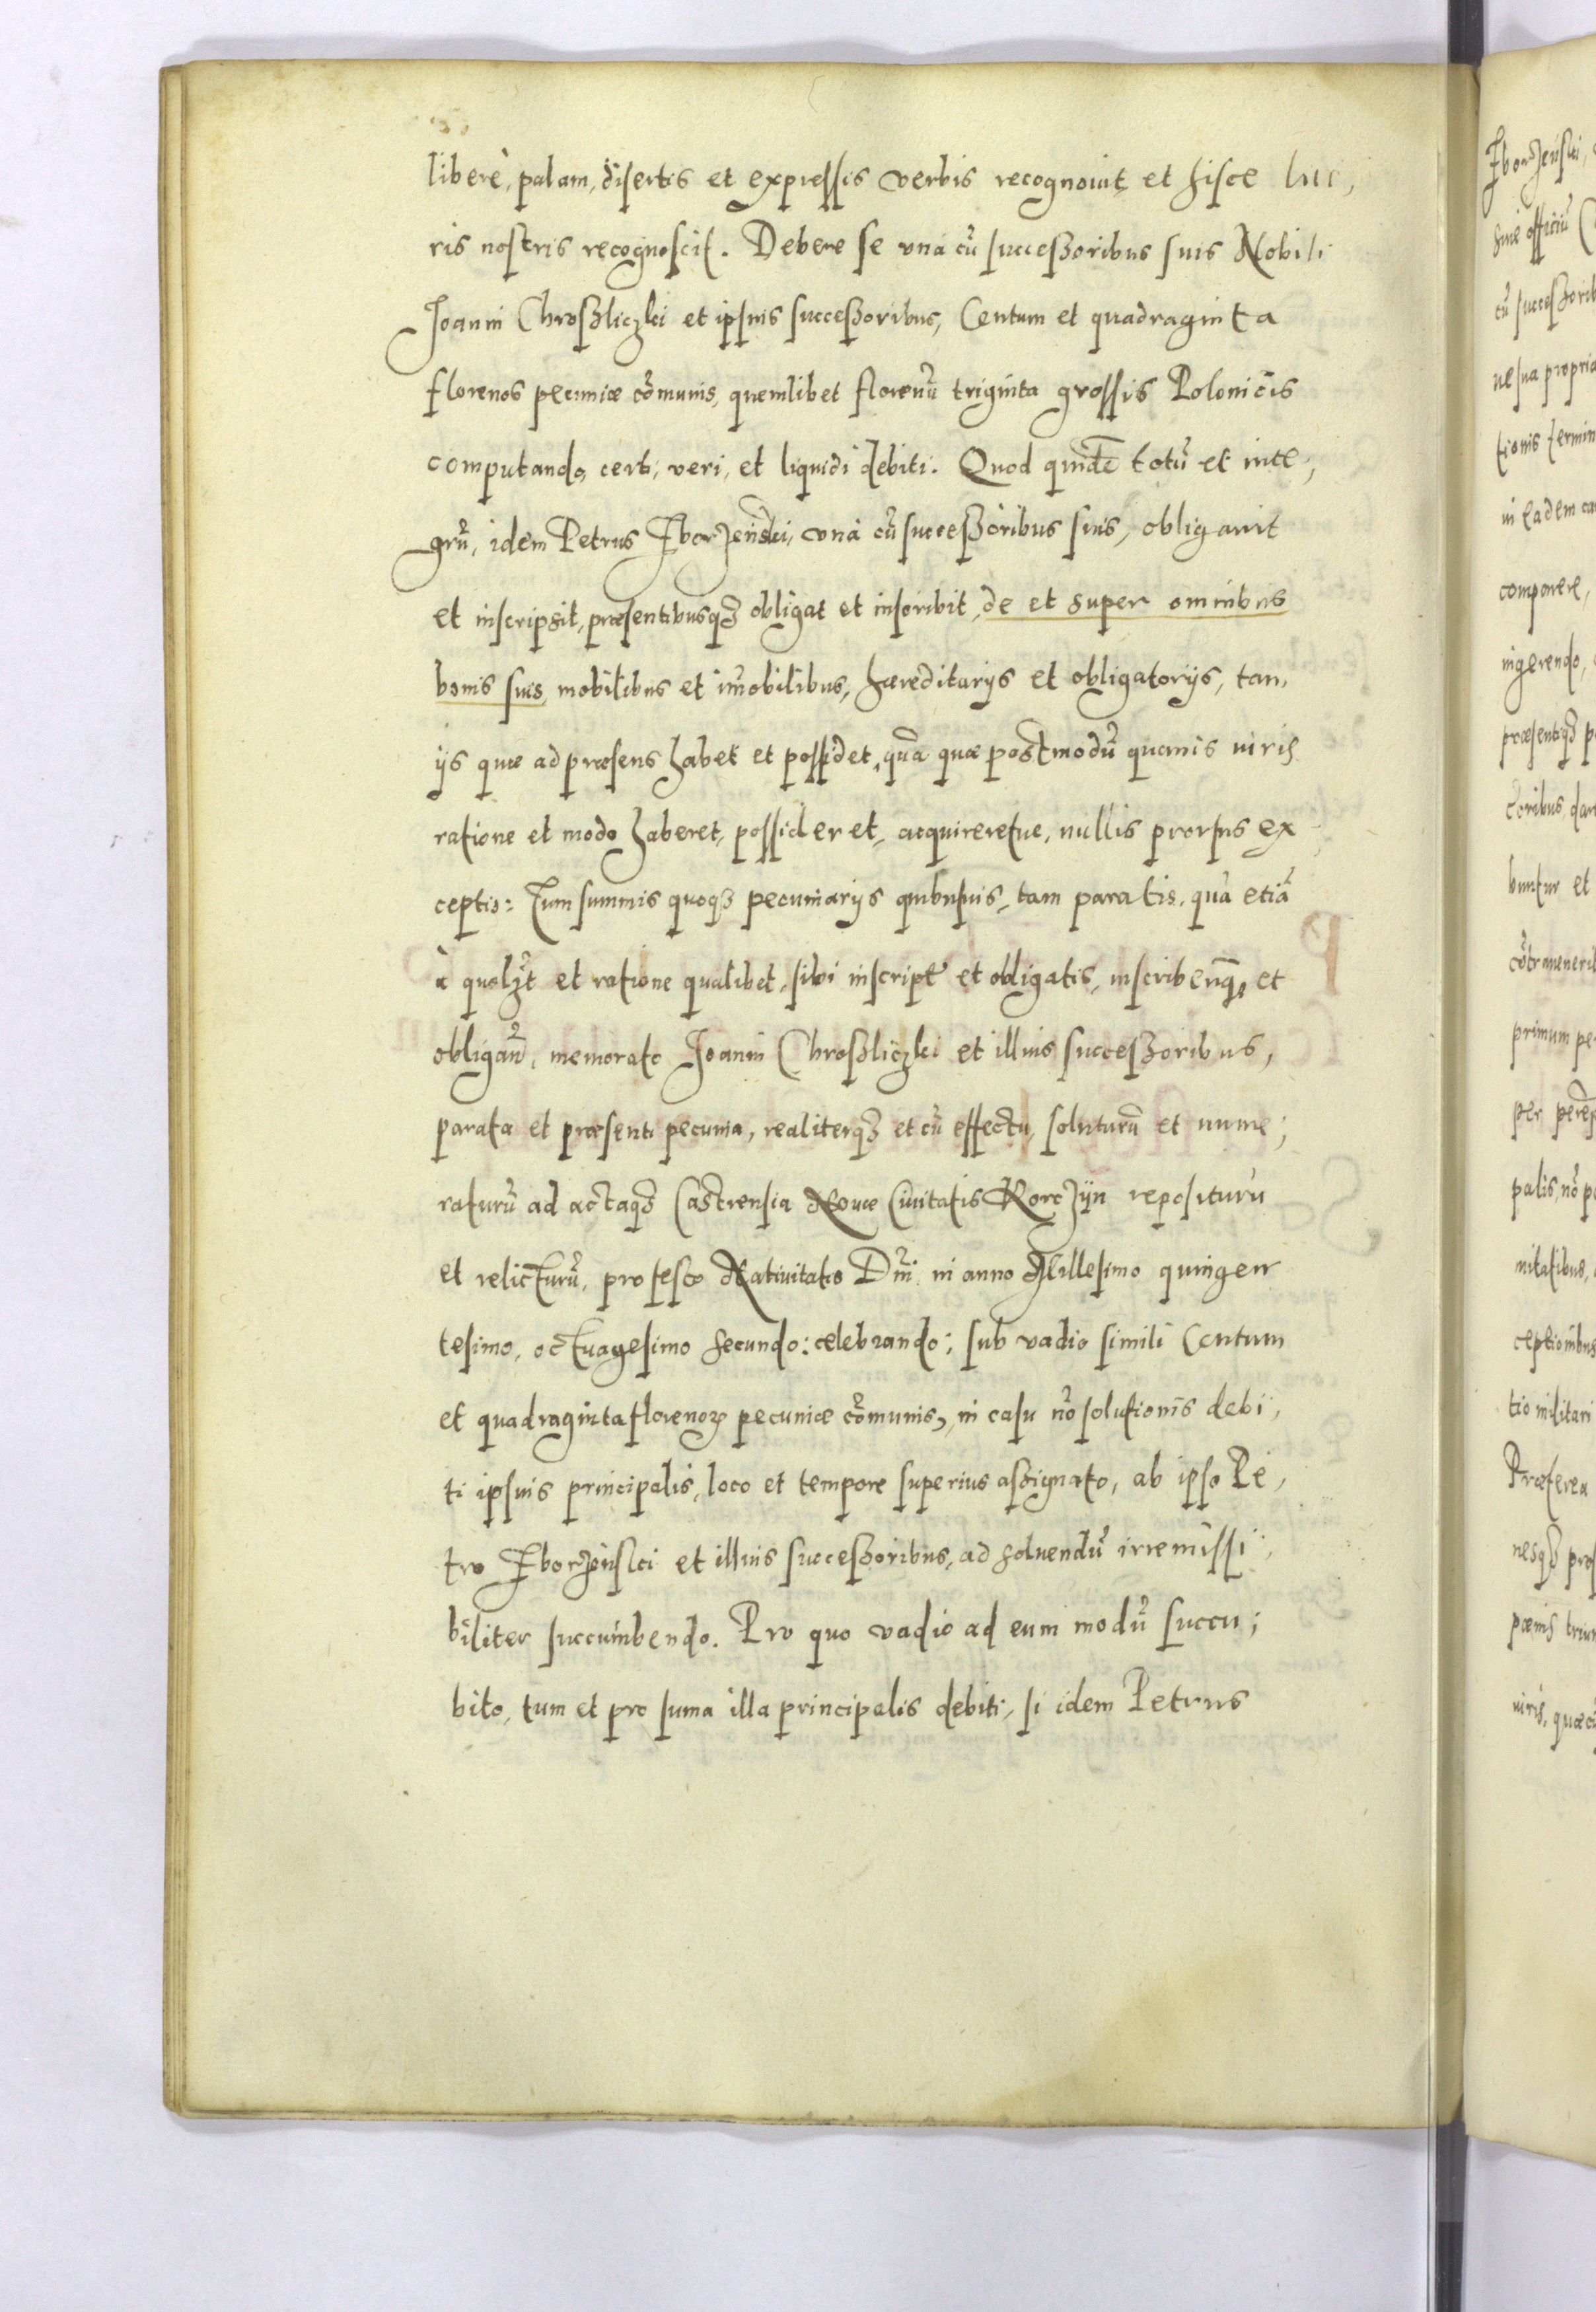 liberè, palam, disertis et expressis verbis recognouit et hisce lite,
ris nostris recognoscit. Debere se vnà cũ successoribus suis Nobili
Joanni Chroszliczki et ipsius successoribus, Centum et quadraginta
florenos pecuniæ cõmunis, quemlibet florenũ triginta grossis Polonicis
computando, certi, veri, et liquidi debiti. Quod quidẽ totũ et inte,
grũ, idem Petrus Zborzenski, vnà cũ successoribus suis, obligauit
et inscripsit, præsentibusq3 obligat et inscribit, de et super omnibus
bonis suis, mobilibus et im̃obilibus, hæreditarijs et obligatorijs, tam
ijs quæ ad præsens habet et possidet, quã quæ postmodũ quouis iuris
ratione et modo haberet, possideret, acquireretue, nullis prorsus ex
ceptis: Tum summis quoq3 pecuniarijs quibusuis, tam paratis, quã etiã
à quol3t et ratione qualibet, sibi inscript̃ et obligatis, inscribenq3 et
obligañ, memorato Joanni Chroszliczki et illius successoribus,
parata et præsenti pecunia, realiterq3 et cũ effectu, soluturũ et nume,
raturũ ad actaq3 Castrensia Nouæ Ciuitatis Korczÿn repositurũ
et relicturũ, pro festo Natiuitatis Dñi in anno Millesimo quingen
tesimo, octuagesimo secundo: celebrando; sub vadio simili Centum
et quadraginta florenoꝝ pecuniæ cõmunis, in casu nõ solutionis debi,
ti ipsius principalis, loco et tempore superius assignato, ab ipso Pe,
tro Zborzenski et illius successoribus, ad soluendũ irremissi,
biliter succumbendo. Pro quo vadio ad eum modũ succu,
bito, tum et pro suma illa principalis debiti, si idem Petrus